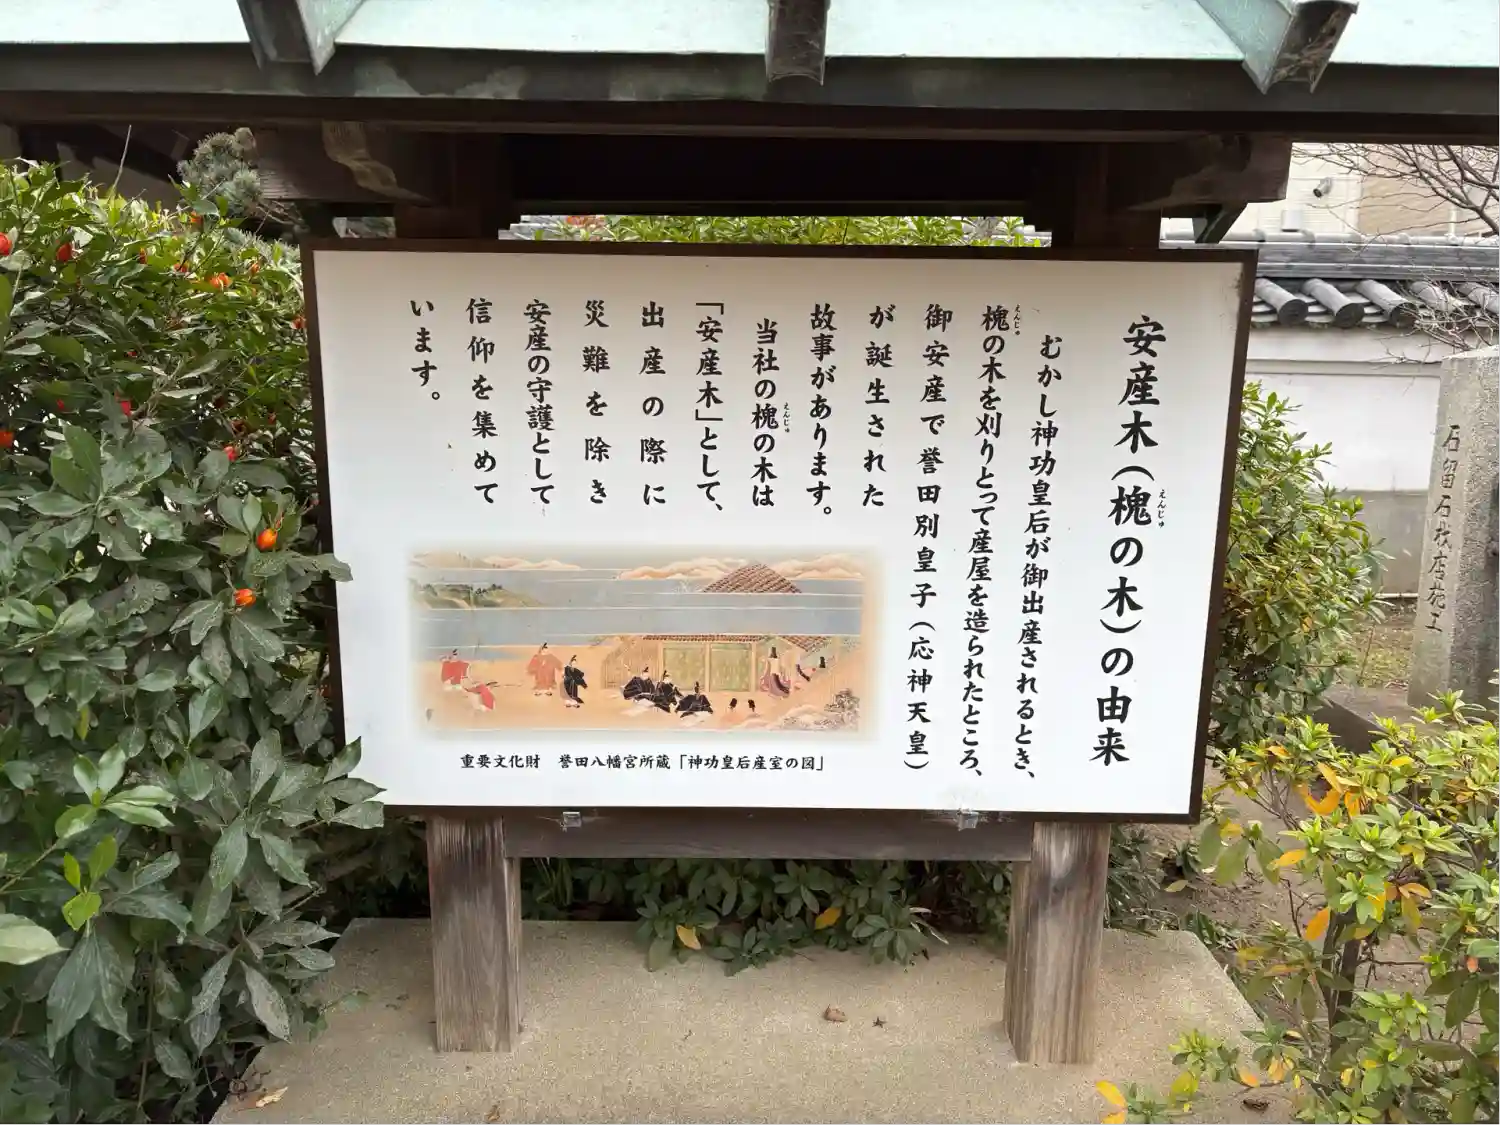 安産木(槐の木)の由来
えんじゅ
むかし神功皇后が御出産されるとき、
槐の木を刈りとって産屋を造られたところ、
えんじゅ
御安産で誉田別皇子(応神天皇)
が誕生された
故事があります。
当社の槐の木は
えんじゅ
「安産木」として、
出産の際に
災難を除き
安産の守護として
信仰を集めて
います。
重要文化財 誉田八幡宮所蔵「神功皇后産室の図」
石留石材店施工